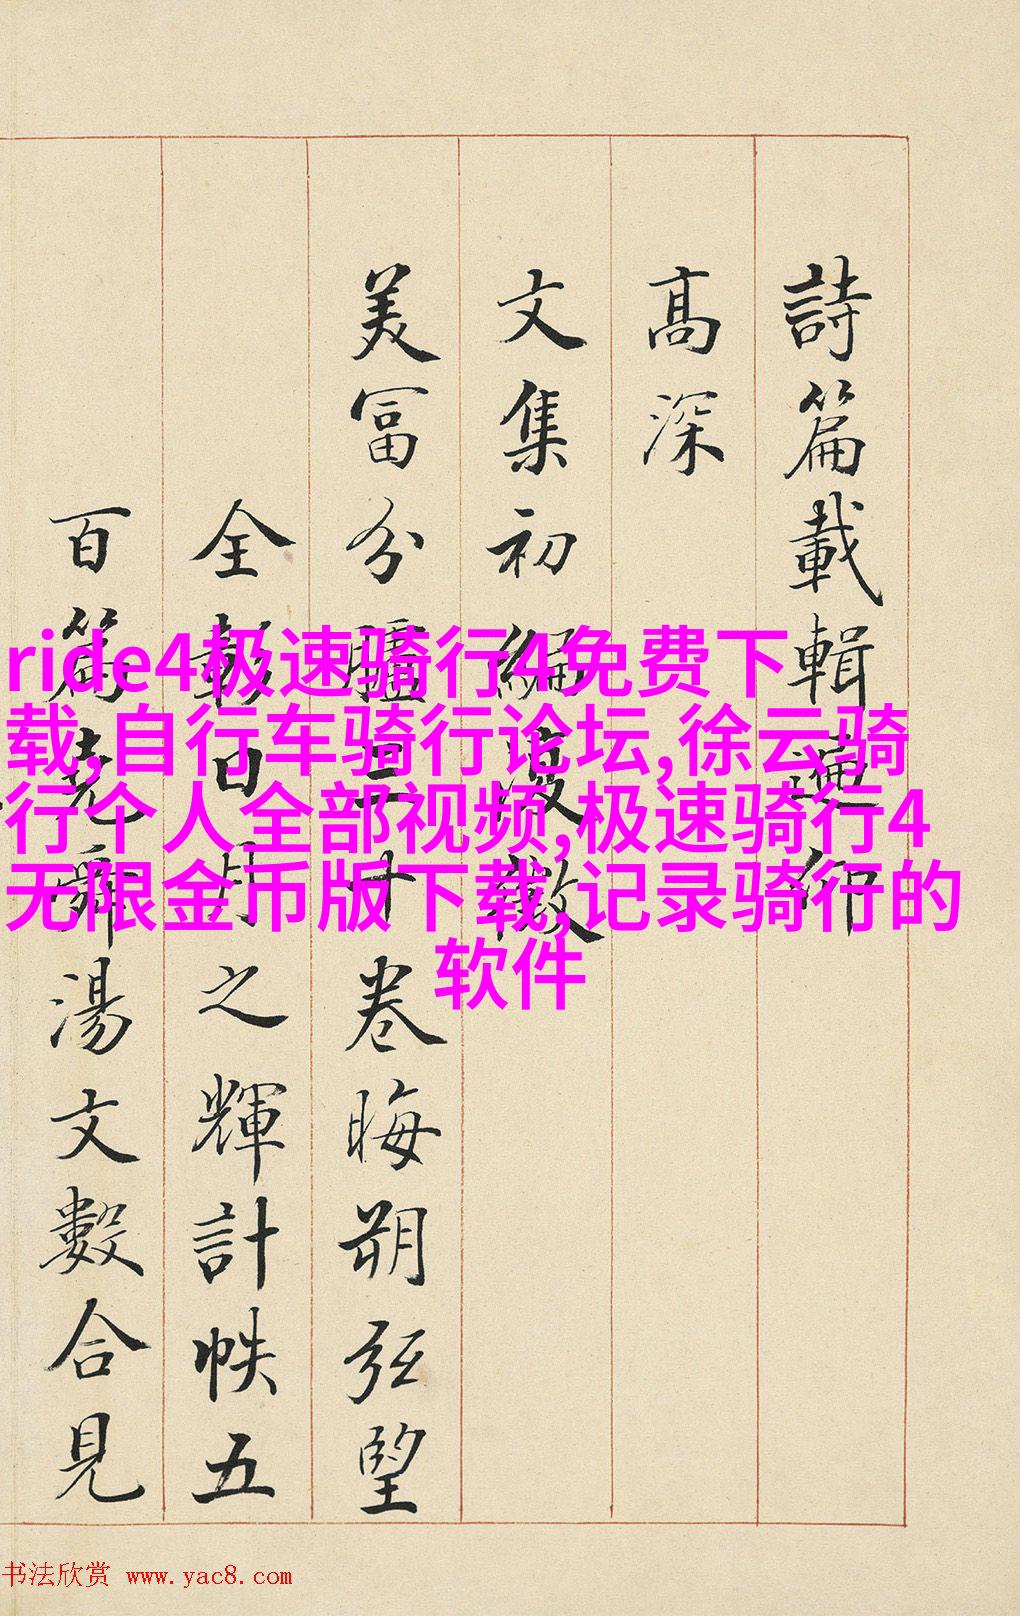 詩篇載輯仰
髙深
文集初編復徵
美冨分臚十卷晦朔弦朢
全彰日月之輝計帙五
百篇堯舜湯文數合見
ride4极速骑行4免费下
载,自行车骑行论坛,徐云骑
行个人全部视频,极速骑行4
无限金币版下载,记录骑行的
软件
书法欣赏 www.yac8.com